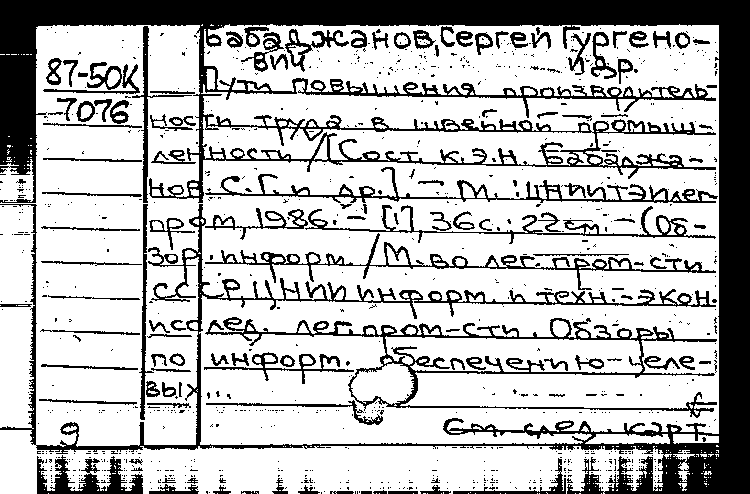 Бабаджанов, Сергей Гургено-
вич и др.
87-50К
Пути повышения производитель-
7076
ности труда в швейной промыш-
ленности / [Сост. к.э.н. Бабаджа-
нов С.Г. и др.]. — М. : ЦНИИТЭИлег-
пром, 1986. — [1], 36 с.; 22 см. — (Об-
зор. информ. / М-во лег. пром-сти
СССР, ЦНИИ информ. и техн.-экон.
исслед. лег. пром-сти. Обзоры
по информ. обеспечению целе-
вых...
См. след. карт.
9